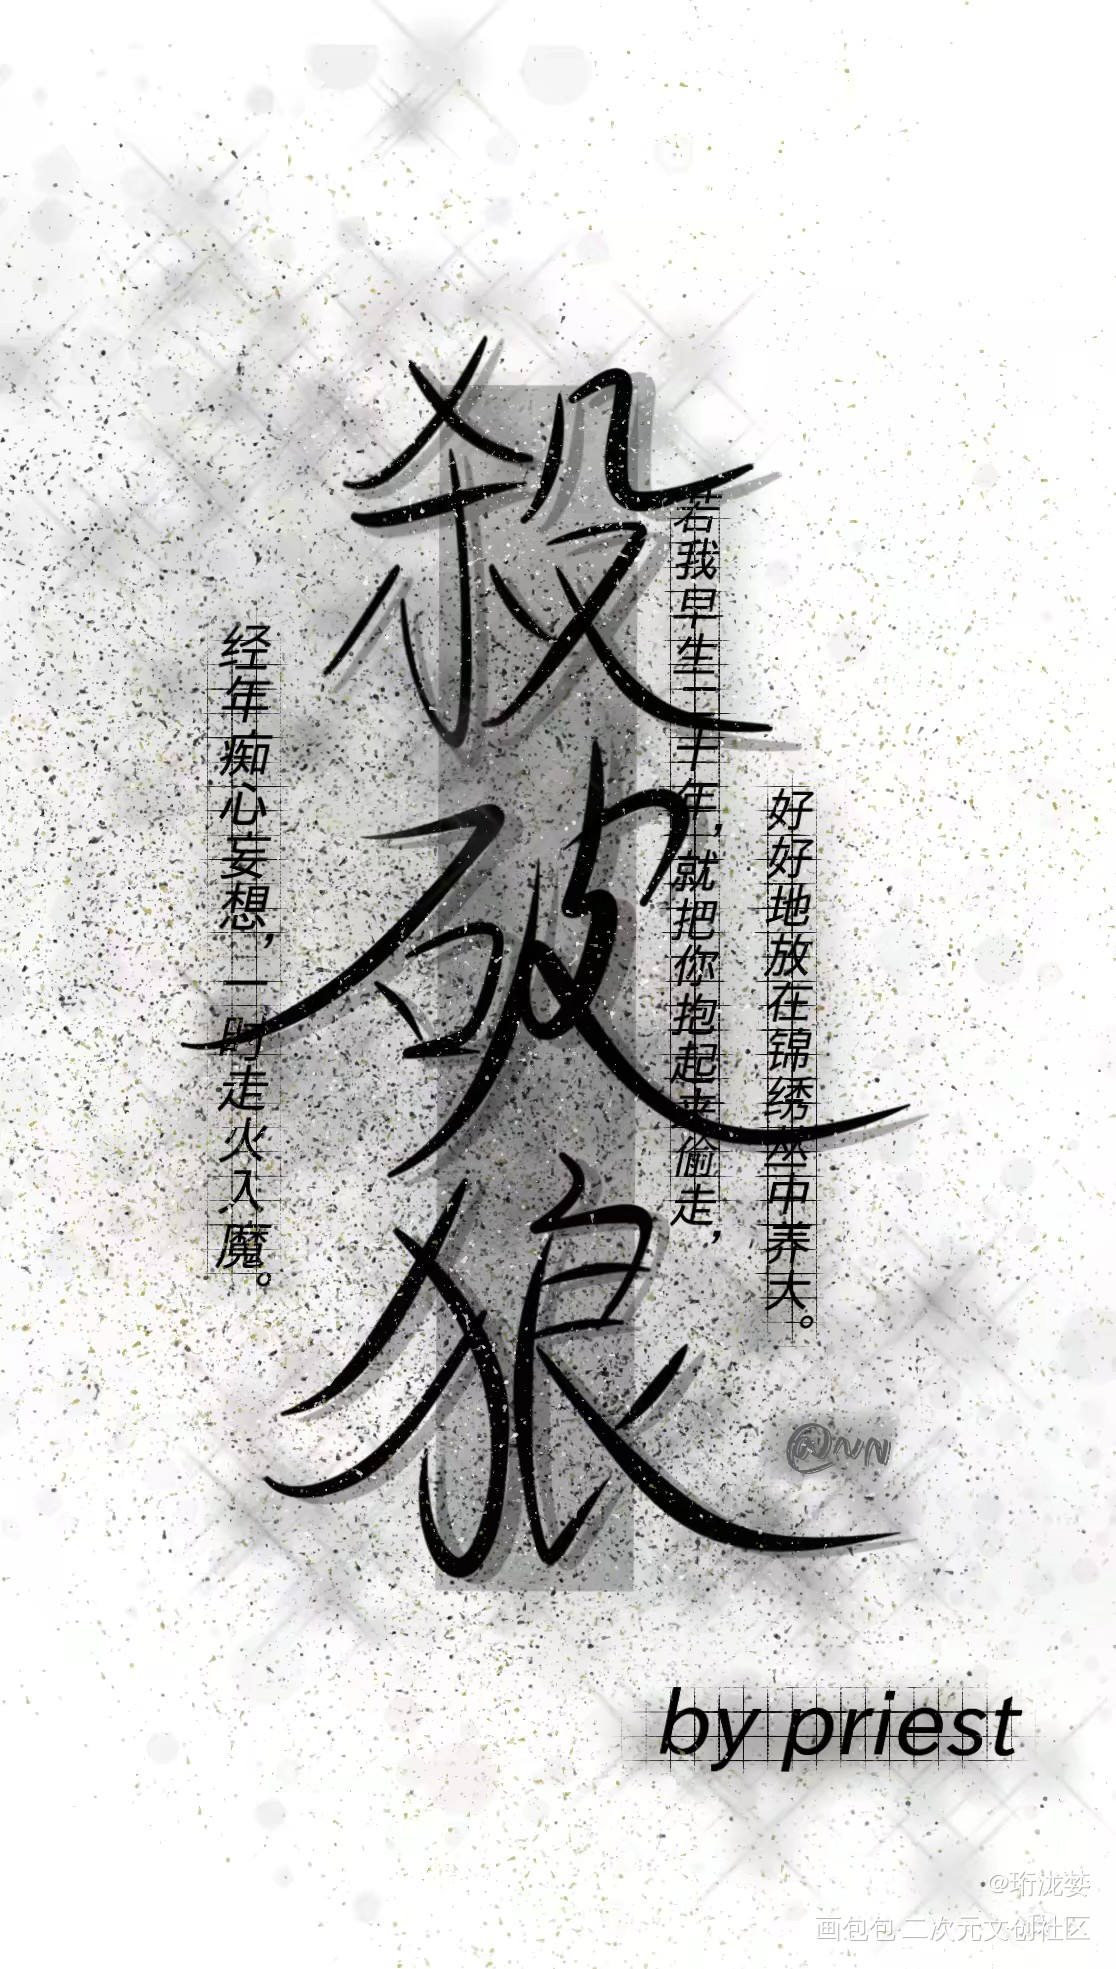 殺破狼
若我早生二十年，就把你抱起来偷走，
好好地放在锦绣丛中养大。
经年痴心妄想，一时走火入魔。
@NN
by priest
@珩泷婪
画包包·二次元文创社区